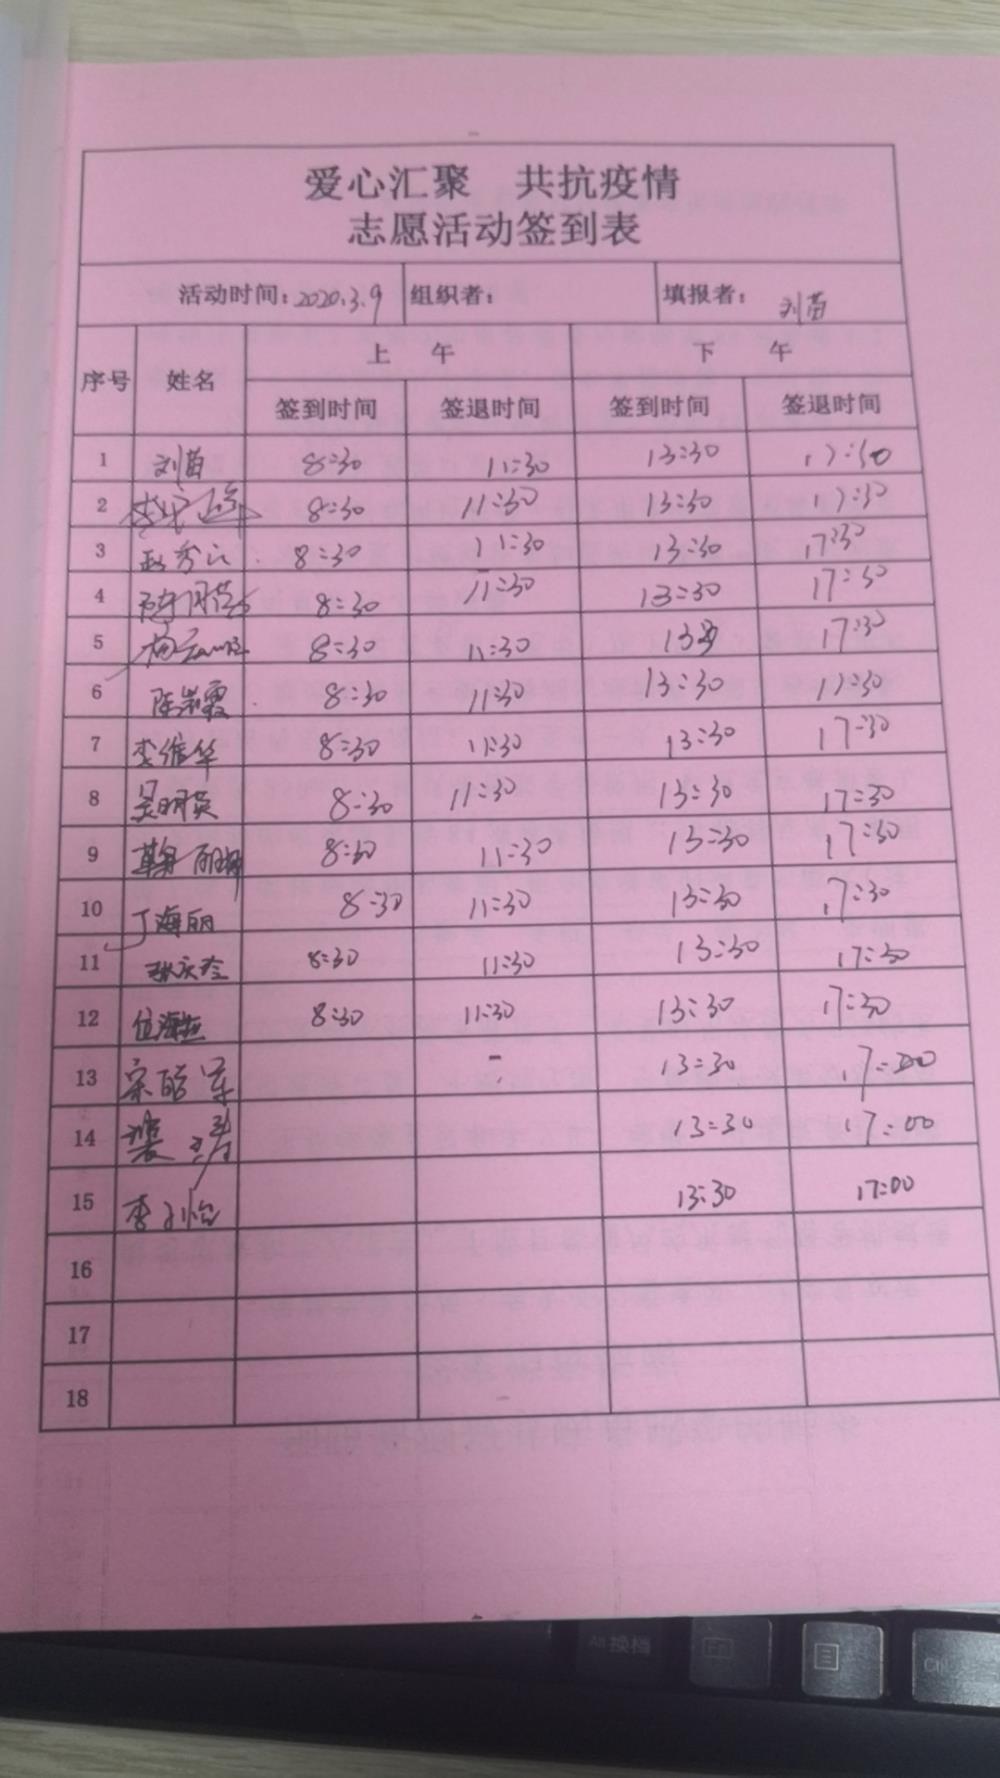 爱心汇聚 共抗疫情
志愿活动签到表
活动时间：2020.3.9 组织者： 填报者： 刘苗
序号 姓名 上 午 下 午
签到时间 签退时间 签到时间 签退时间
1 刘苗 8:30 11:30 13:30 17:30
2 8:30 11:30 13:30 17:30
3 赵秀 8:30 11:30 13:30 17:30
4 8:30 11:30 13:30 17:30
5 杨 8:30 11:30 17:30
6 陈崇霞 8:30 11:30 13:30 17:30
7 李维华 8:30 11:30 13:30 17:30
8 吴明英 8:30 11:30 13:30 17:30
9 丽娜 8:30 11:30 13:30 17:30
10 丁海丽 8:30 11:30 13:30 17:30
11 张庆 8:30 11:30 13:30 17:30
12 位海 8:30 11:30 13:30 17:30
13 宋 军 13:30 17:00
14 裴 13:30 17:00
15 李 怡 13:30 17:00
16
17
18
Alt 换档
Fn
Ctrl